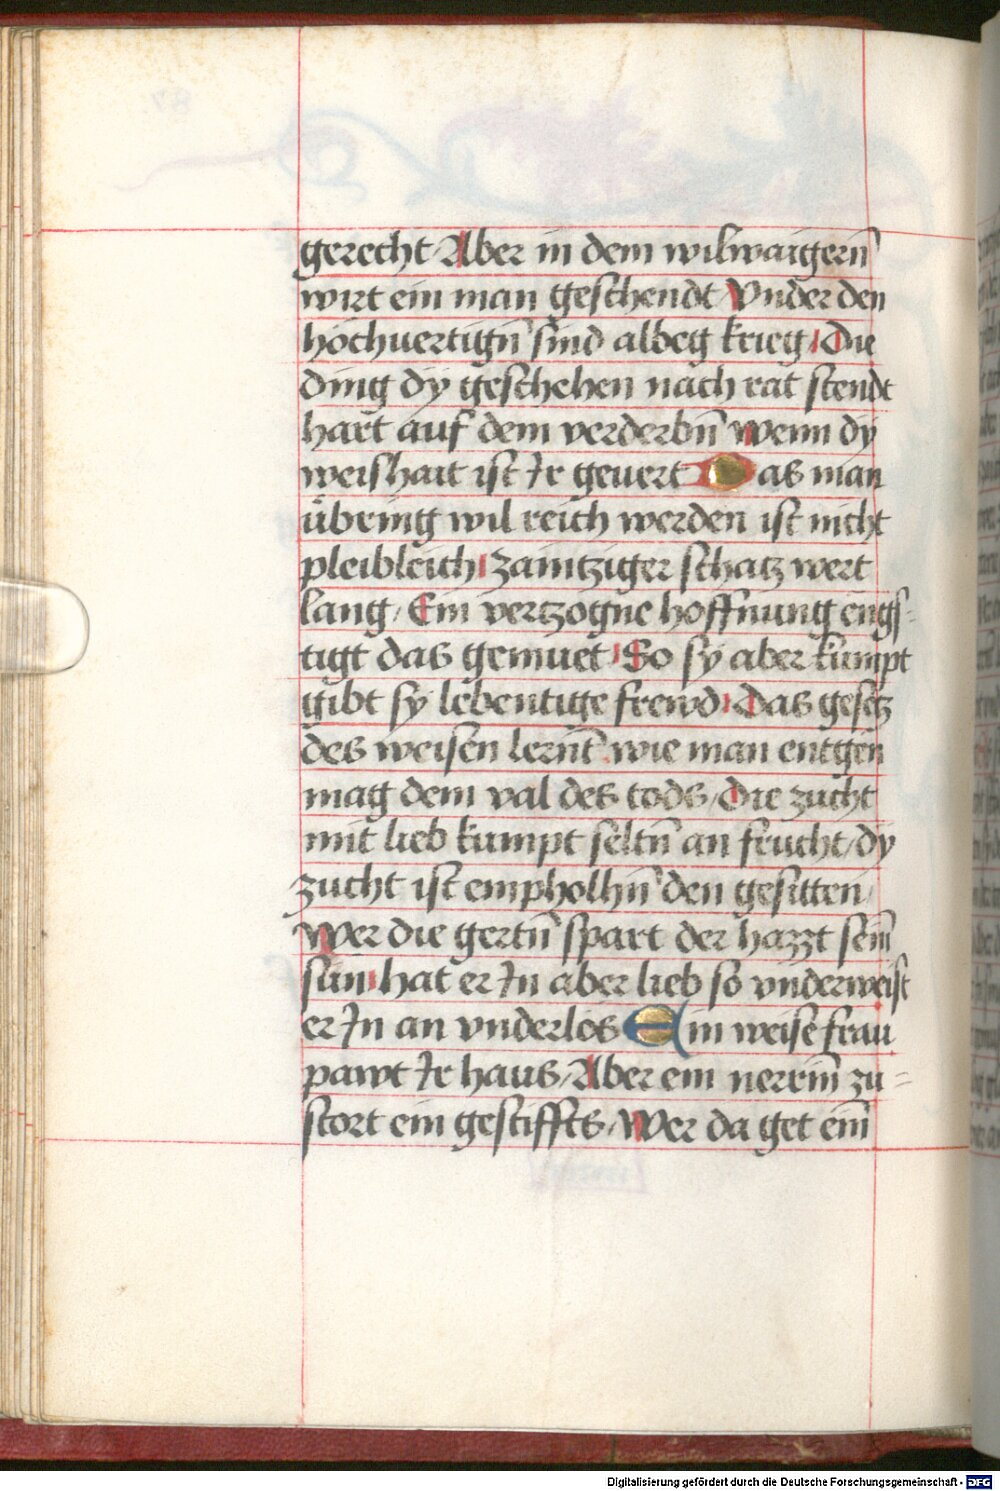 gerecht / Aber in dem wilwaigern̄
wirt ein man geschendt / Vnder den
hochuertign̄ sind albeg krieg / Die
ding dy geschehen nach rat stendt
hart auf dem verderbn̄ wenn dy
weishait ist Ir geuert Das man
übring wil reich werden ist nicht
pleibleich / Zaintziger schatz wert
lang / Ein vertzogne hoffnung engs-
tigt das gemuet / So sy aber kumpt
gibt sy lebentige frewd / Das gesetz
des weisen lernt wie man entgen
mag dem val des tods / Die zucht
mit lieb kumpt seltn̄ an frucht / dy
zucht ist empholhn̄ den gesitten /
Wer die gertn̄ spart der hazzt sein
sun / hat er In aber lieb so vnderweist
er In an vnderlos Ein weise frau
pawt Ir haus / Aber ein nerrin̄ zu-
stort ein gestiffts / Wer da get ein̄
Digitalisierung gefördert durch die Deutsche Forschungsgemeinschaft - DFG